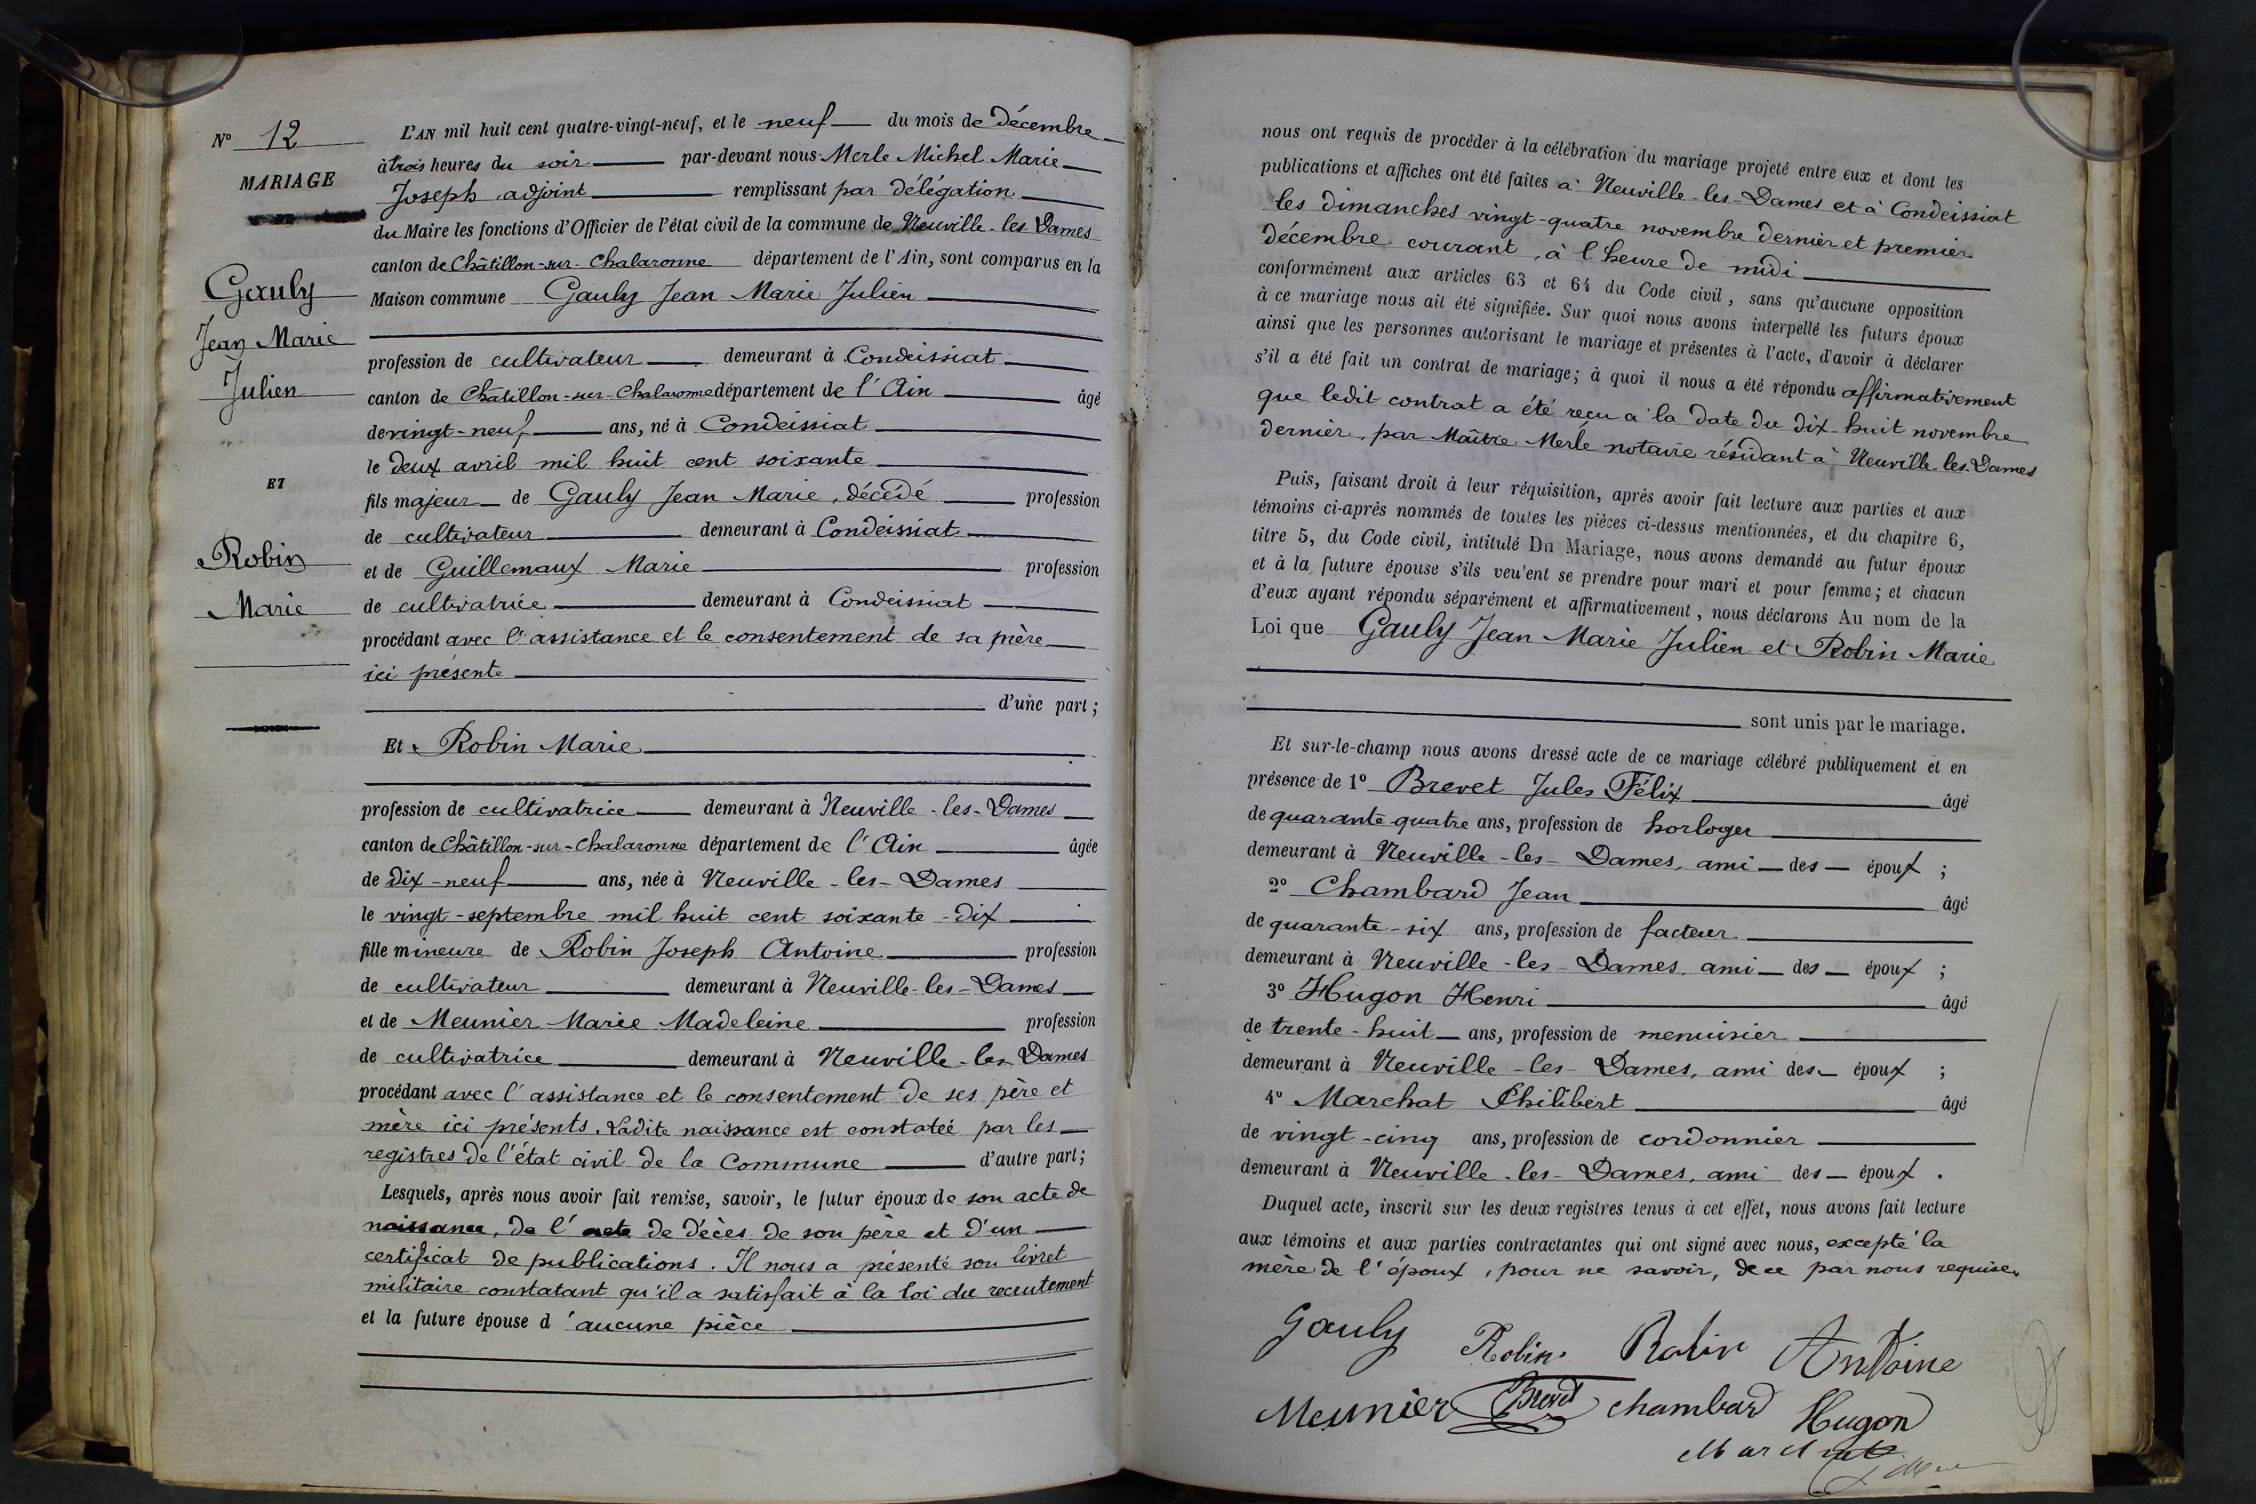 N° 12
MARIAGE
Gauly
Jean Marie
Julien
ET
Robin
Marie
L'AN mil huit cent quatre-vingt-neuf, et le neuf du mois de Décembre
à trois heures du soir par-devant nous Merle Michel Marie
Joseph, adjoint remplissant par délégation
du Maire les fonctions d'Officier de l'état civil de la commune de Neuville-les-Dames
canton de Châtillon-sur-Chalaronne département de l'Ain, sont comparus en la
Maison commune Gauly Jean Marie Julien
profession de cultivateur demeurant à Condeissiat
canton de Châtillon-sur-Chalaronne département de l'Ain âgé
de vingt-neuf ans, né à Condeissiat
le deux avril mil huit cent soixante
fils majeur de Gauly Jean Marie, décédé profession
de cultivateur demeurant à Condeissiat
et de Guillemaux Marie profession
de cultivatrice demeurant à Condeissiat
procédant avec l'assistance et le consentement de sa mère
ici présente
d'une part;
Et Robin Marie
profession de cultivatrice demeurant à Neuville-les-Dames
canton de Châtillon-sur-Chalaronne département de l'Ain âgée
de dix-neuf ans, née à Neuville-les-Dames
le vingt-septembre mil huit cent soixante-dix
fille mineure de Robin Joseph Antoine profession
de cultivateur demeurant à Neuville-les-Dames
et de Meunier Marie Madeleine profession
de cultivatrice demeurant à Neuville-les Dames
procédant avec l'assistance et le consentement de ses père et
mère ici présents. Ladite naissance est constatée par les
registres de l'état civil de la Commune d'autre part;
Lesquels, après nous avoir fait remise, savoir, le futur époux de son acte de
naissance, de l'acte de décès de son père et d'un
certificat de publications. Il nous a présenté son livret
militaire constatant qu'il a satisfait à la loi du recrutement
et la future épouse d'aucune pièce
nous ont requis de procéder à la célébration du mariage projeté entre eux et dont les
publications et affiches ont été faites à Neuville-les-Dames et à Condeissiat
les dimanches vingt-quatre novembre dernier et premier
décembre courant, à l'heure de midi
conformément aux articles 63 et 64 du Code civil, sans qu'aucune opposition
à ce mariage nous ait été signifiée. Sur quoi nous avons interpellé les futurs époux
ainsi que les personnes autorisant le mariage et présentes à l'acte, d'avoir à déclarer
s'il a été fait un contrat de mariage; à quoi il nous a été répondu affirmativement
que ledit contrat a été reçu à la date du dix-huit novembre
dernier, par Maître Merle notaire résidant à Neuville-les-Dames
Puis, faisant droit à leur réquisition, après avoir fait lecture aux parties et aux
témoins ci-après nommés de toutes les pièces ci-dessus mentionnées, et du chapitre 6,
titre 5, du Code civil, intitulé Du Mariage, nous avons demandé au futur époux
et à la future épouse s'ils veulent se prendre pour mari et pour femme; et chacun
d'eux ayant répondu séparément et affirmativement, nous déclarons Au nom de la
Loi que Gauly Jean Marie Julien et Robin Marie
sont unis par le mariage.
Et sur-le-champ nous avons dressé acte de ce mariage célébré publiquement et en
présence de 1° Brevet Jules Félix âgé
de quarante quatre ans, profession de horloger
demeurant à Neuville-les-Dames, ami des époux ;
2° Chambard Jean âgé
de quarante-six ans, profession de facteur
demeurant à Neuville-les-Dames, ami des époux ;
3° Hugon Henri âgé
de trente-huit ans, profession de menuisier
demeurant à Neuville-les-Dames, ami des époux ;
4° Marchat Philibert âgé
de vingt-cinq ans, profession de cordonnier
demeurant à Neuville-les-Dames, ami des époux .
Duquel acte, inscrit sur les deux registres tenus à cet effet, nous avons fait lecture
aux témoins et aux parties contractantes qui ont signé avec nous, excepté la
mère de l'époux, pour ne savoir, de ce par nous requise.
Gauly Robin Robin Antoine
Meunier Brevet Chambard Hugon
Marchat